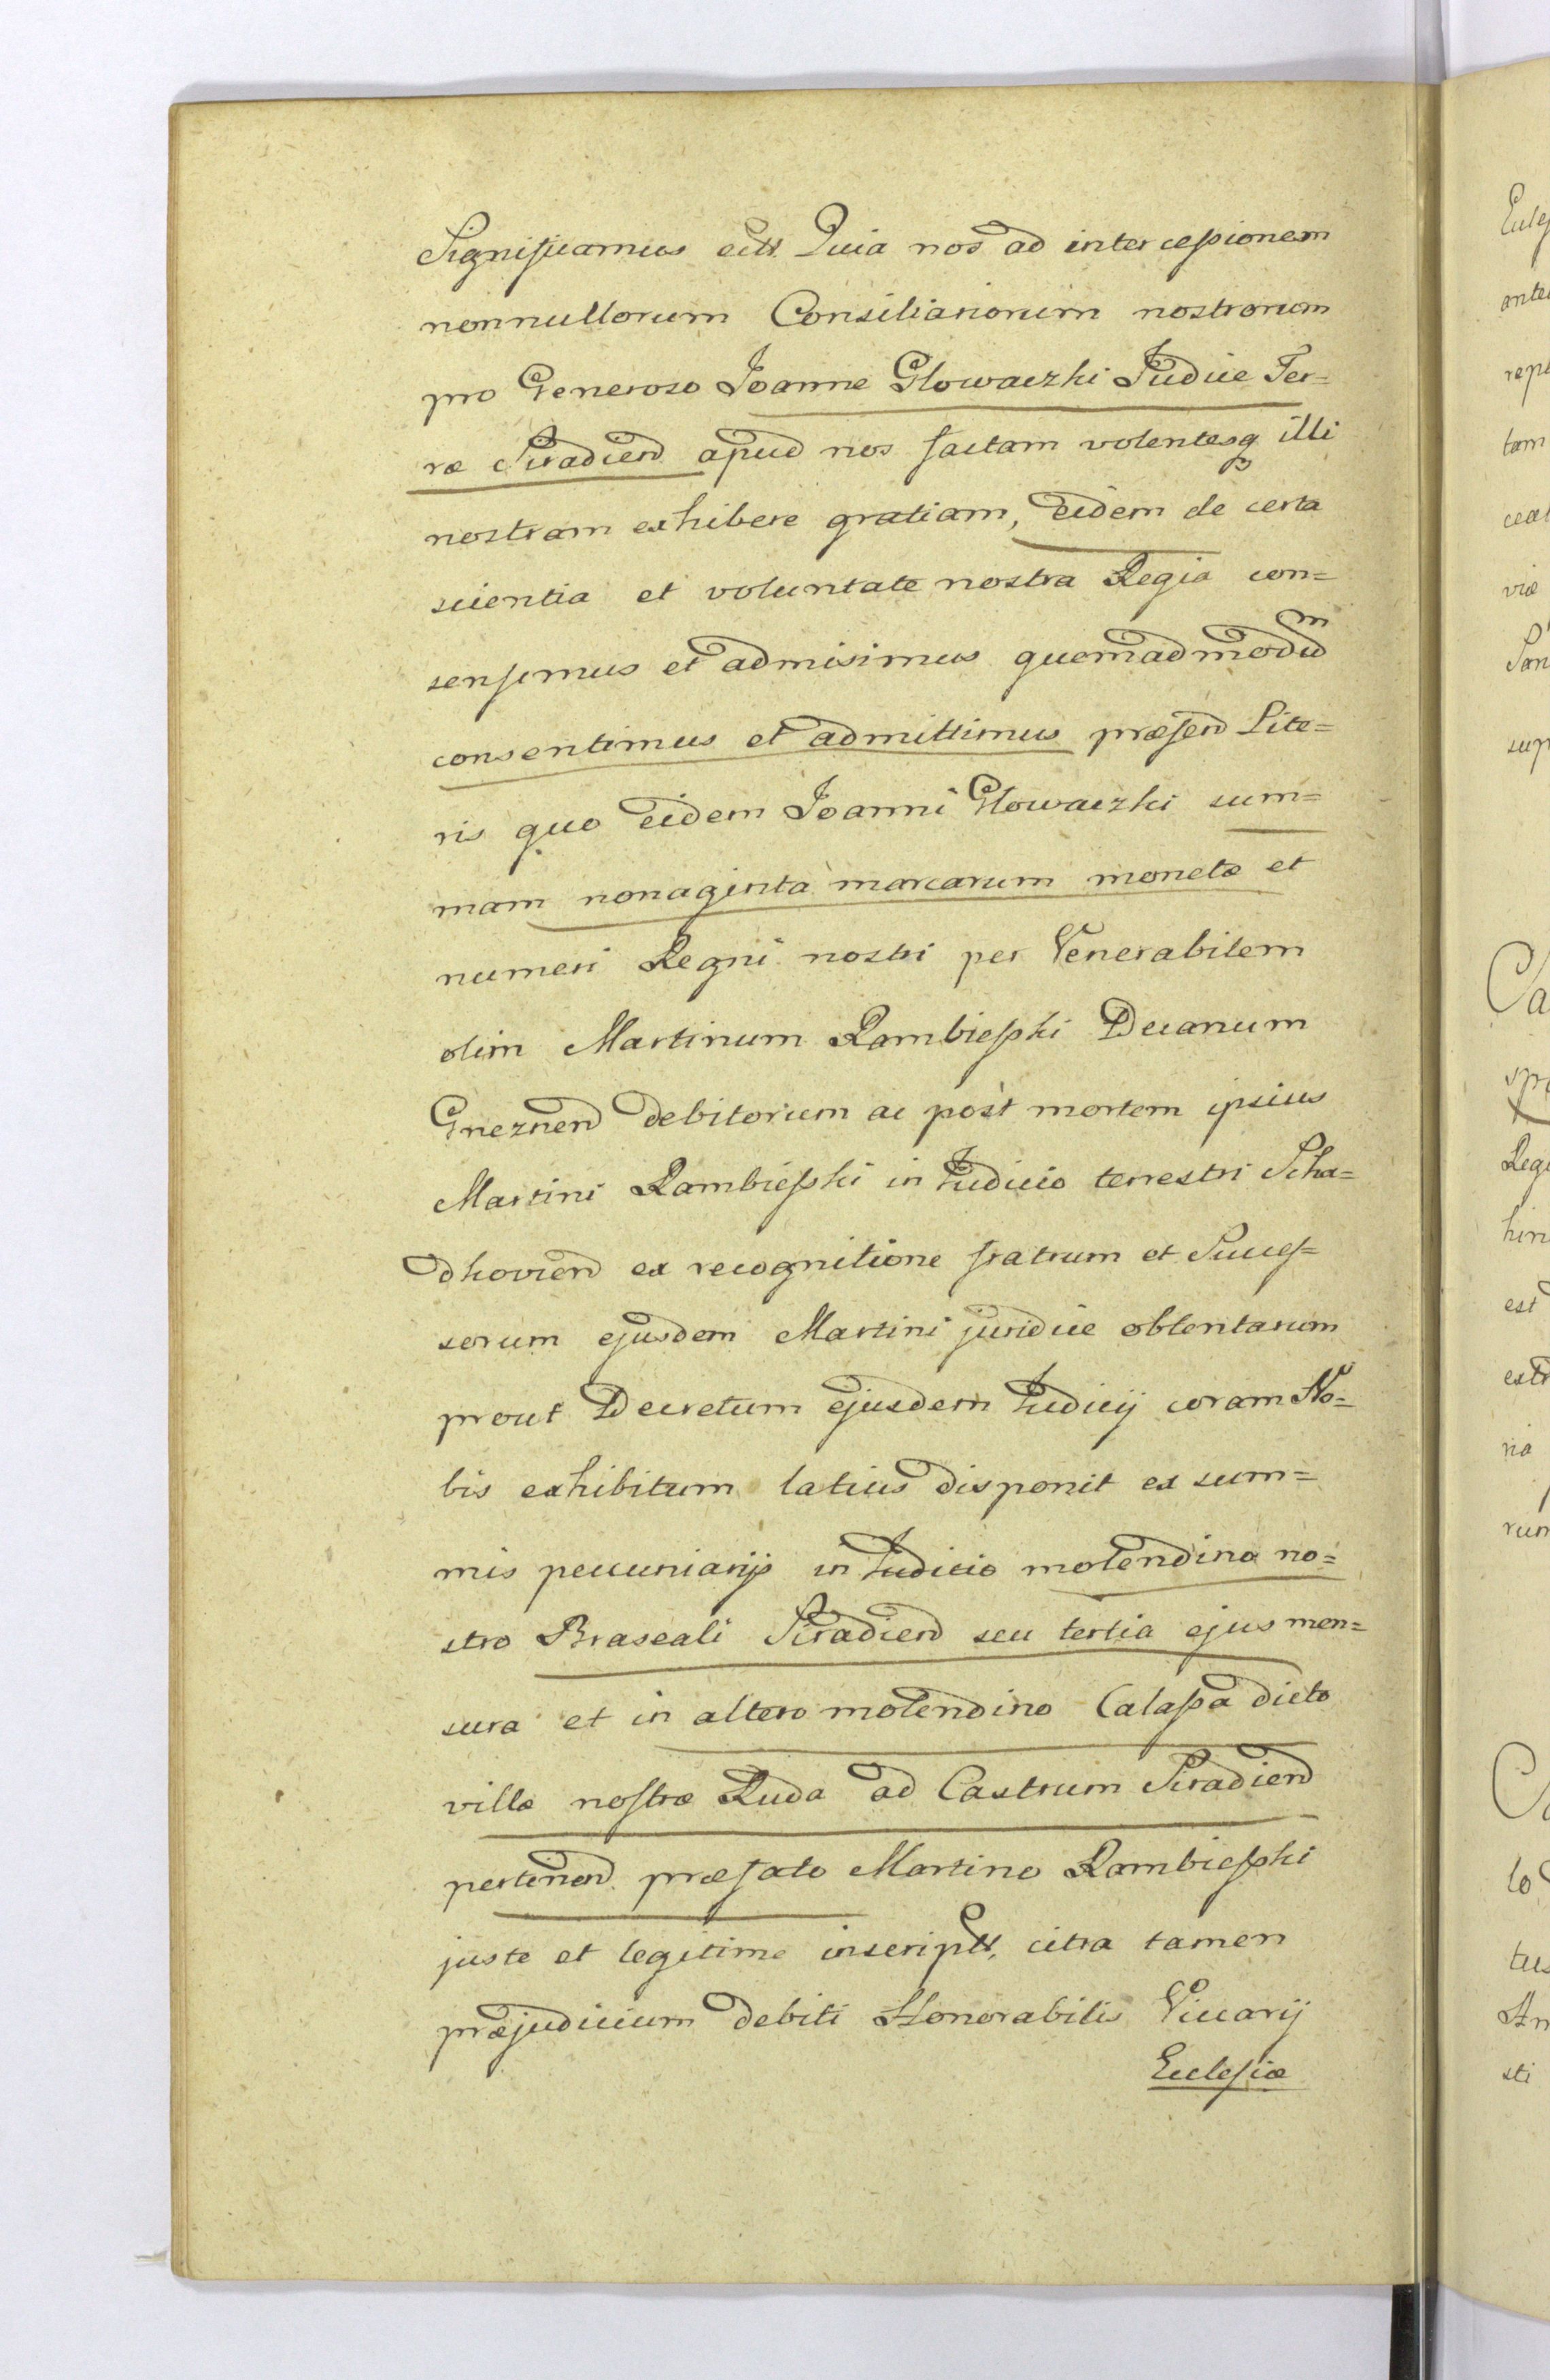 Significamus ectt. Quia nos ad intercessionem
nonnullorum Consiliariorum nostrorum
pro Generoso Joanne Glowaczki Judice Ter=
ræ Siradien apud nos factam volentesq illi
nostram exhibere gratiam, eidem de certa
scientia et voluntate nostra Regia con=
sensimus et admisimus quemadmodum
consentimus et admittimus præsen Lite=
ris quo eidem Joanni Glowaczki sum=
mam nonaginta marcarum monetæ et
numeri Regni nostri per Venerabilem
olim Martinum Rambiesski Decanum
Gneznen debitorum ac post mortem ipsius
Martini Rambiesski in Judicio terrestri Scha=
dkovien ex recognitione fratrum et Succes=
sorum ejusdem Martini juridice obtentarum
prout Decretum ejusdem Judicij coram No=
bis exhibitum latius disponit ex sum=
mis pecuniarijs in Judicio molendino no=
stro Braseali Siradien seu tertia ejus men=
sura et in altero molendino Calassa dicto
villæ nostræ Ruda ad Castrum Siradien
pertinen. præfato Martino Rambiesski
juste et legitime inscriptt, citra tamen
præjudicium debiti Honorabilis Viccarij
Ecclesiæ